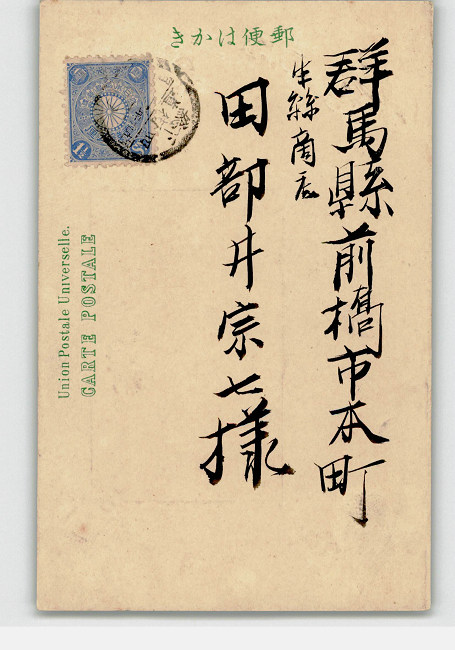 郵便はかき
群馬縣前橋市本町
生絲商店
田部井宗七様
Union Postale Universelle.
CARTE POSTALE